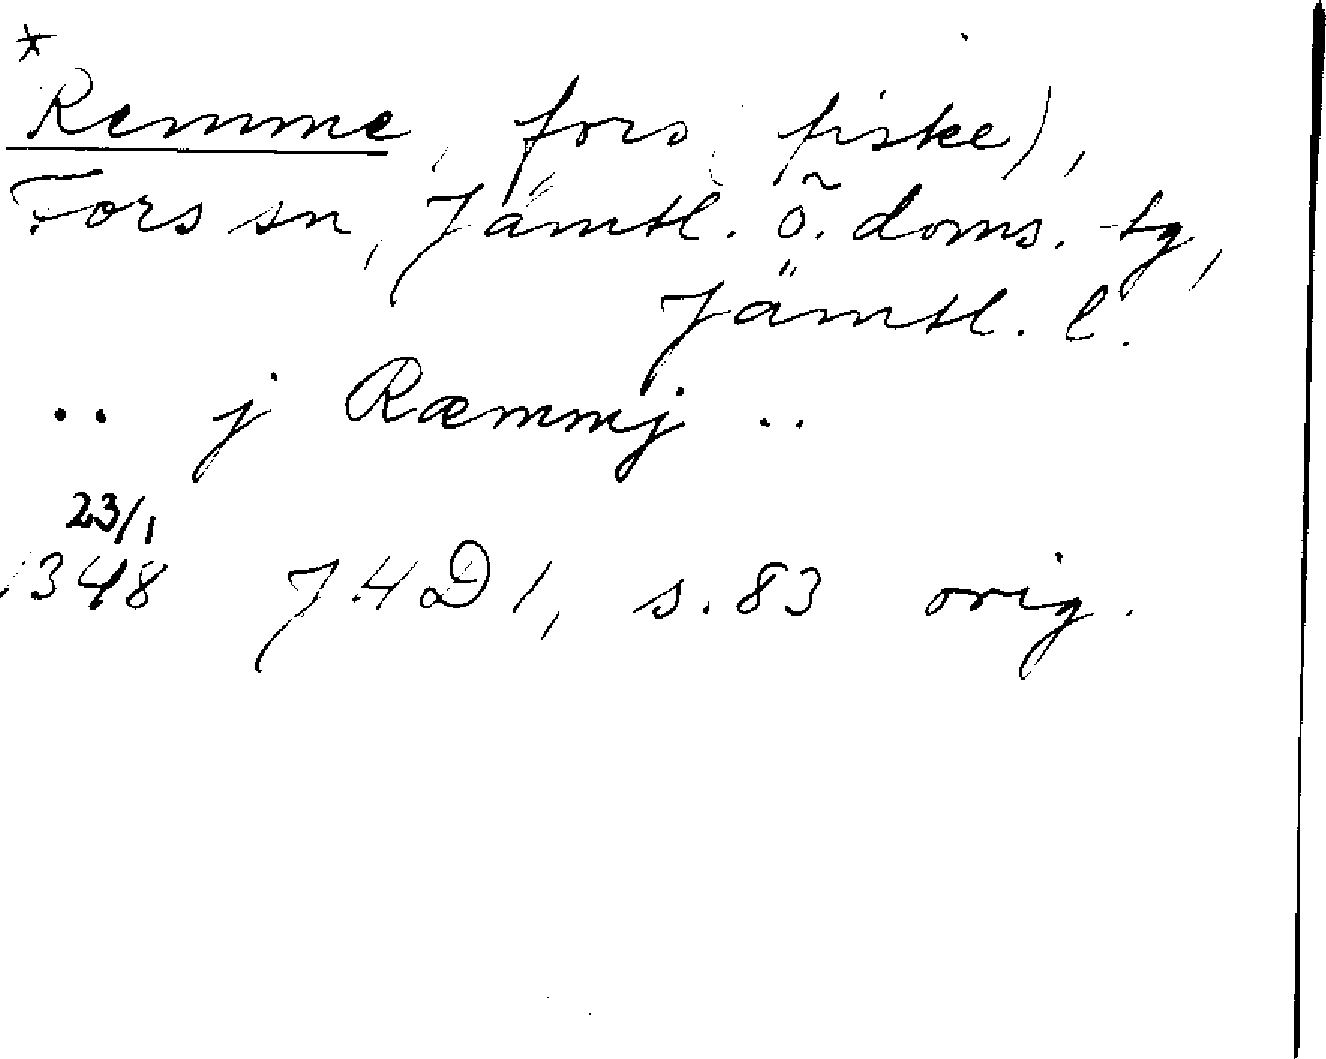 *
Remme, fors (fiske),
Fors sn, Jämtl. ö. doms. tg,
Jämtl. l.
.. j Ræmmj ..
23/1
1348 JHD 1, s. 83 orig.